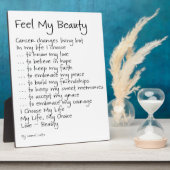 Feel My Beauty
Cancer changes being but
In my life I choose
. . . to honor my love
. . . to believe in hope
. . . to keep my faith
. . . to embrace my peace
. . . to build my friendships
. . . to keep my sweet memories
. . . to accept my grace
. . . to embrace my courage
I Choose My Life
My Life, My Choice
Love - Beauty
By